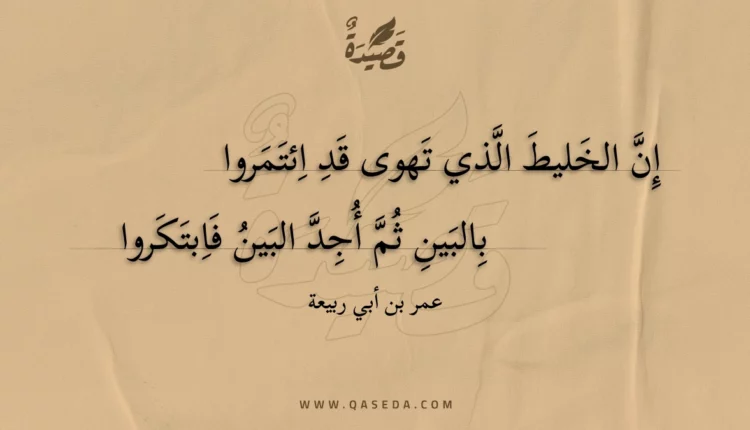 قَصِيْدَةٌ
إِنَّ الخَليطَ الَّذي تَهوى قَدِ اِئتَمَروا
بِالبَينِ ثُمَّ أُجِدَّ البَينُ فَاِبتَكَروا
عمر بن أبي ربيعة
WWW.QASEDA.COM